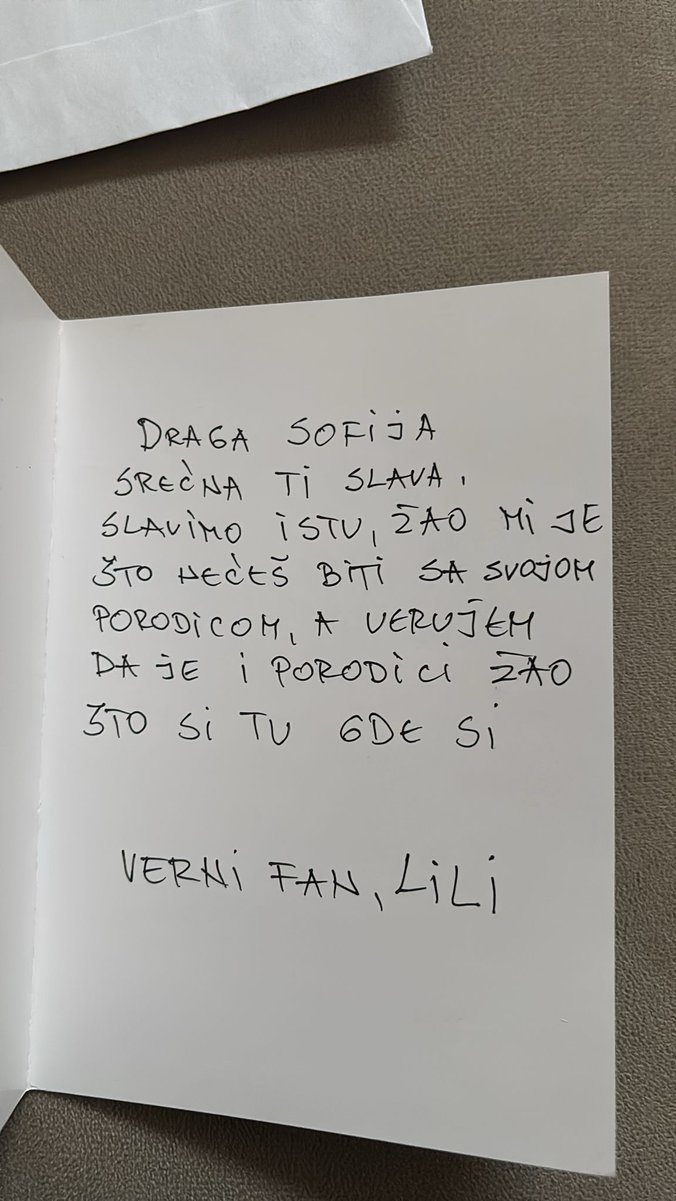 DRAGA SOFIJA
SREĆNA TI SLAVA,
SLAVIMO ISTU, ŽAO MI JE
ŠTO NEĆEŠ BITI SA SVOJOM
PORODICOM, A VERUJEM
DA JE I PORODICI ŽAO
ŠTO SI TU GDE SI
VERNI FAN, LILI